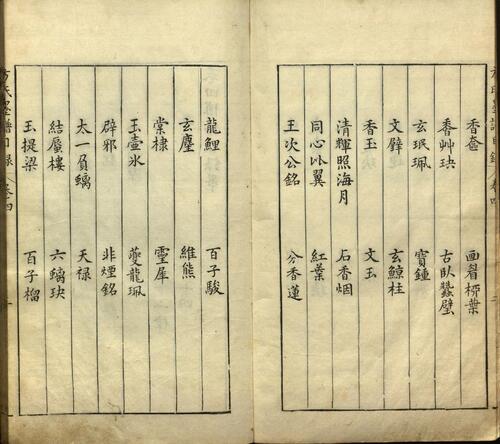 香奩 画眉榞葉
香艸玦 古臥蠶璧
玄珉珮 寶鍾
文犀 玄鯨柱
香玉 文玉
清輝照海月 石香烟
同心比翼 紅葉
王次公銘 分香蓮
龍鯉 百子駿
玄麈 維熊
棠棣 靈犀
玉壺冰 夔龍珮
辟邪 非煙銘
太一負螭 天祿
結蜃樓 六螭玦
玉提梁 百子榴
方氏墨譜目錄 卷四